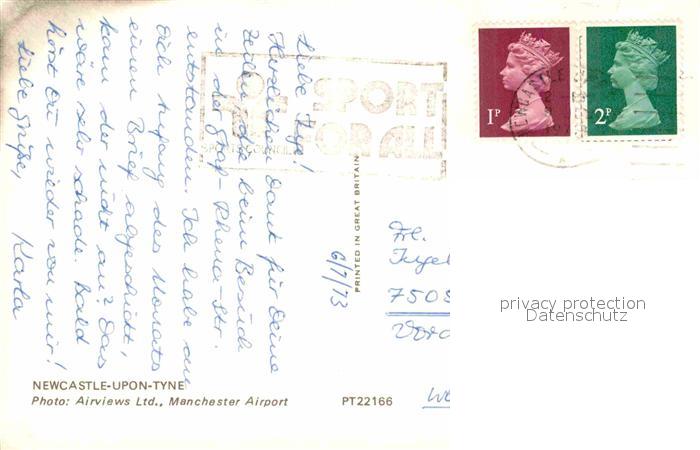 Liebe Inge!
Herzlichen Dank für Deine
Zeilen, die beim Besuch
in der Graf-Rhena-Str.
entstanden. Ich habe an
Dich Anfang des Monats
einen Brief abgeschickt,
kam der nicht an? Das
wäre sehr schade. Bald
hörst Du wieder von mir!
Liebe Grüße,
Karla
6/7/73
SPORT
FOR ALL
SPORTS COUNCIL
1P
2P
PRINTED IN GREAT BRITAIN
Frl.
7505
privacy protection
Datenschutz
NEWCASTLE-UPON-TYNE
Photo: Airviews Ltd., Manchester Airport
PT22166